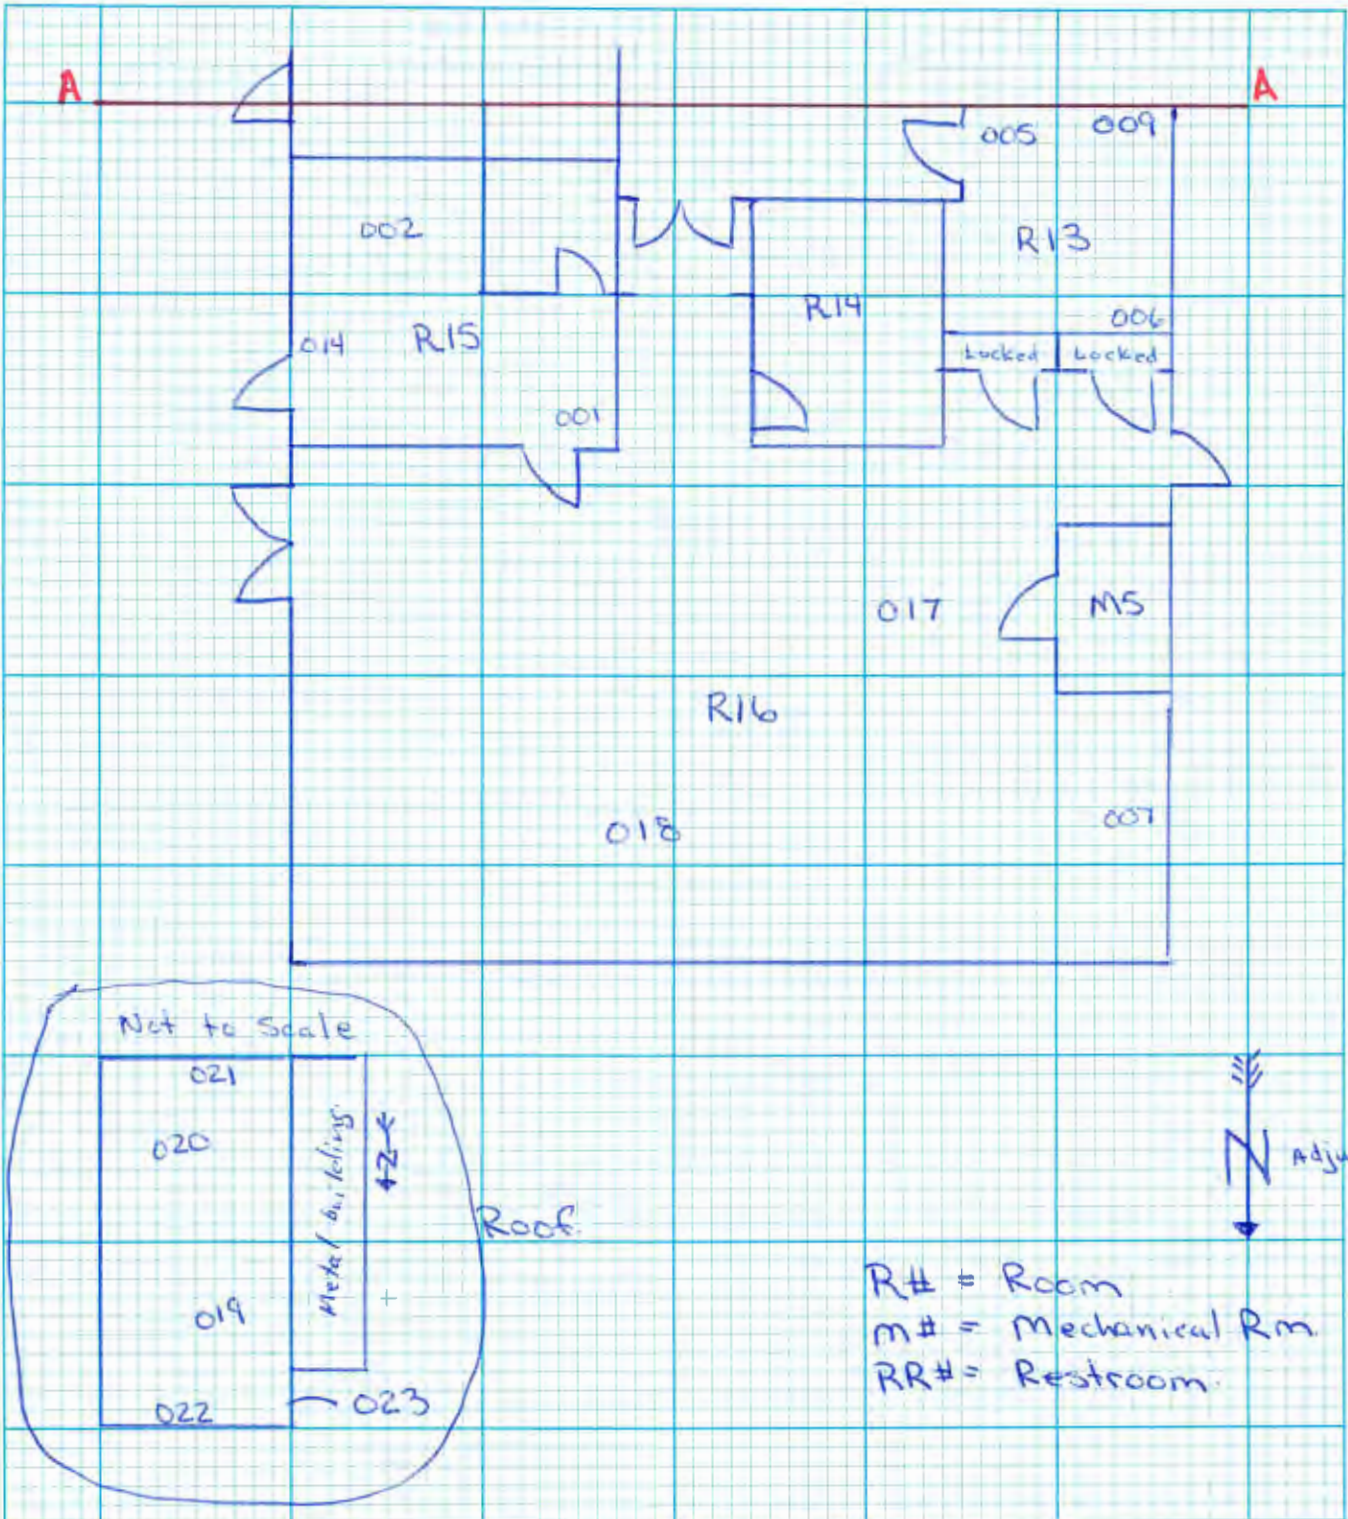 A
A
005
009
002
R13
R14
006
014
R15
Locked
Locked
001
017
M5
R16
018
007
Not to Scale
021
020
Metal building
N
Roof.
019
022
023
N
Adju
R# = Room
m# = Mechanical Rm.
RR# = Restroom.